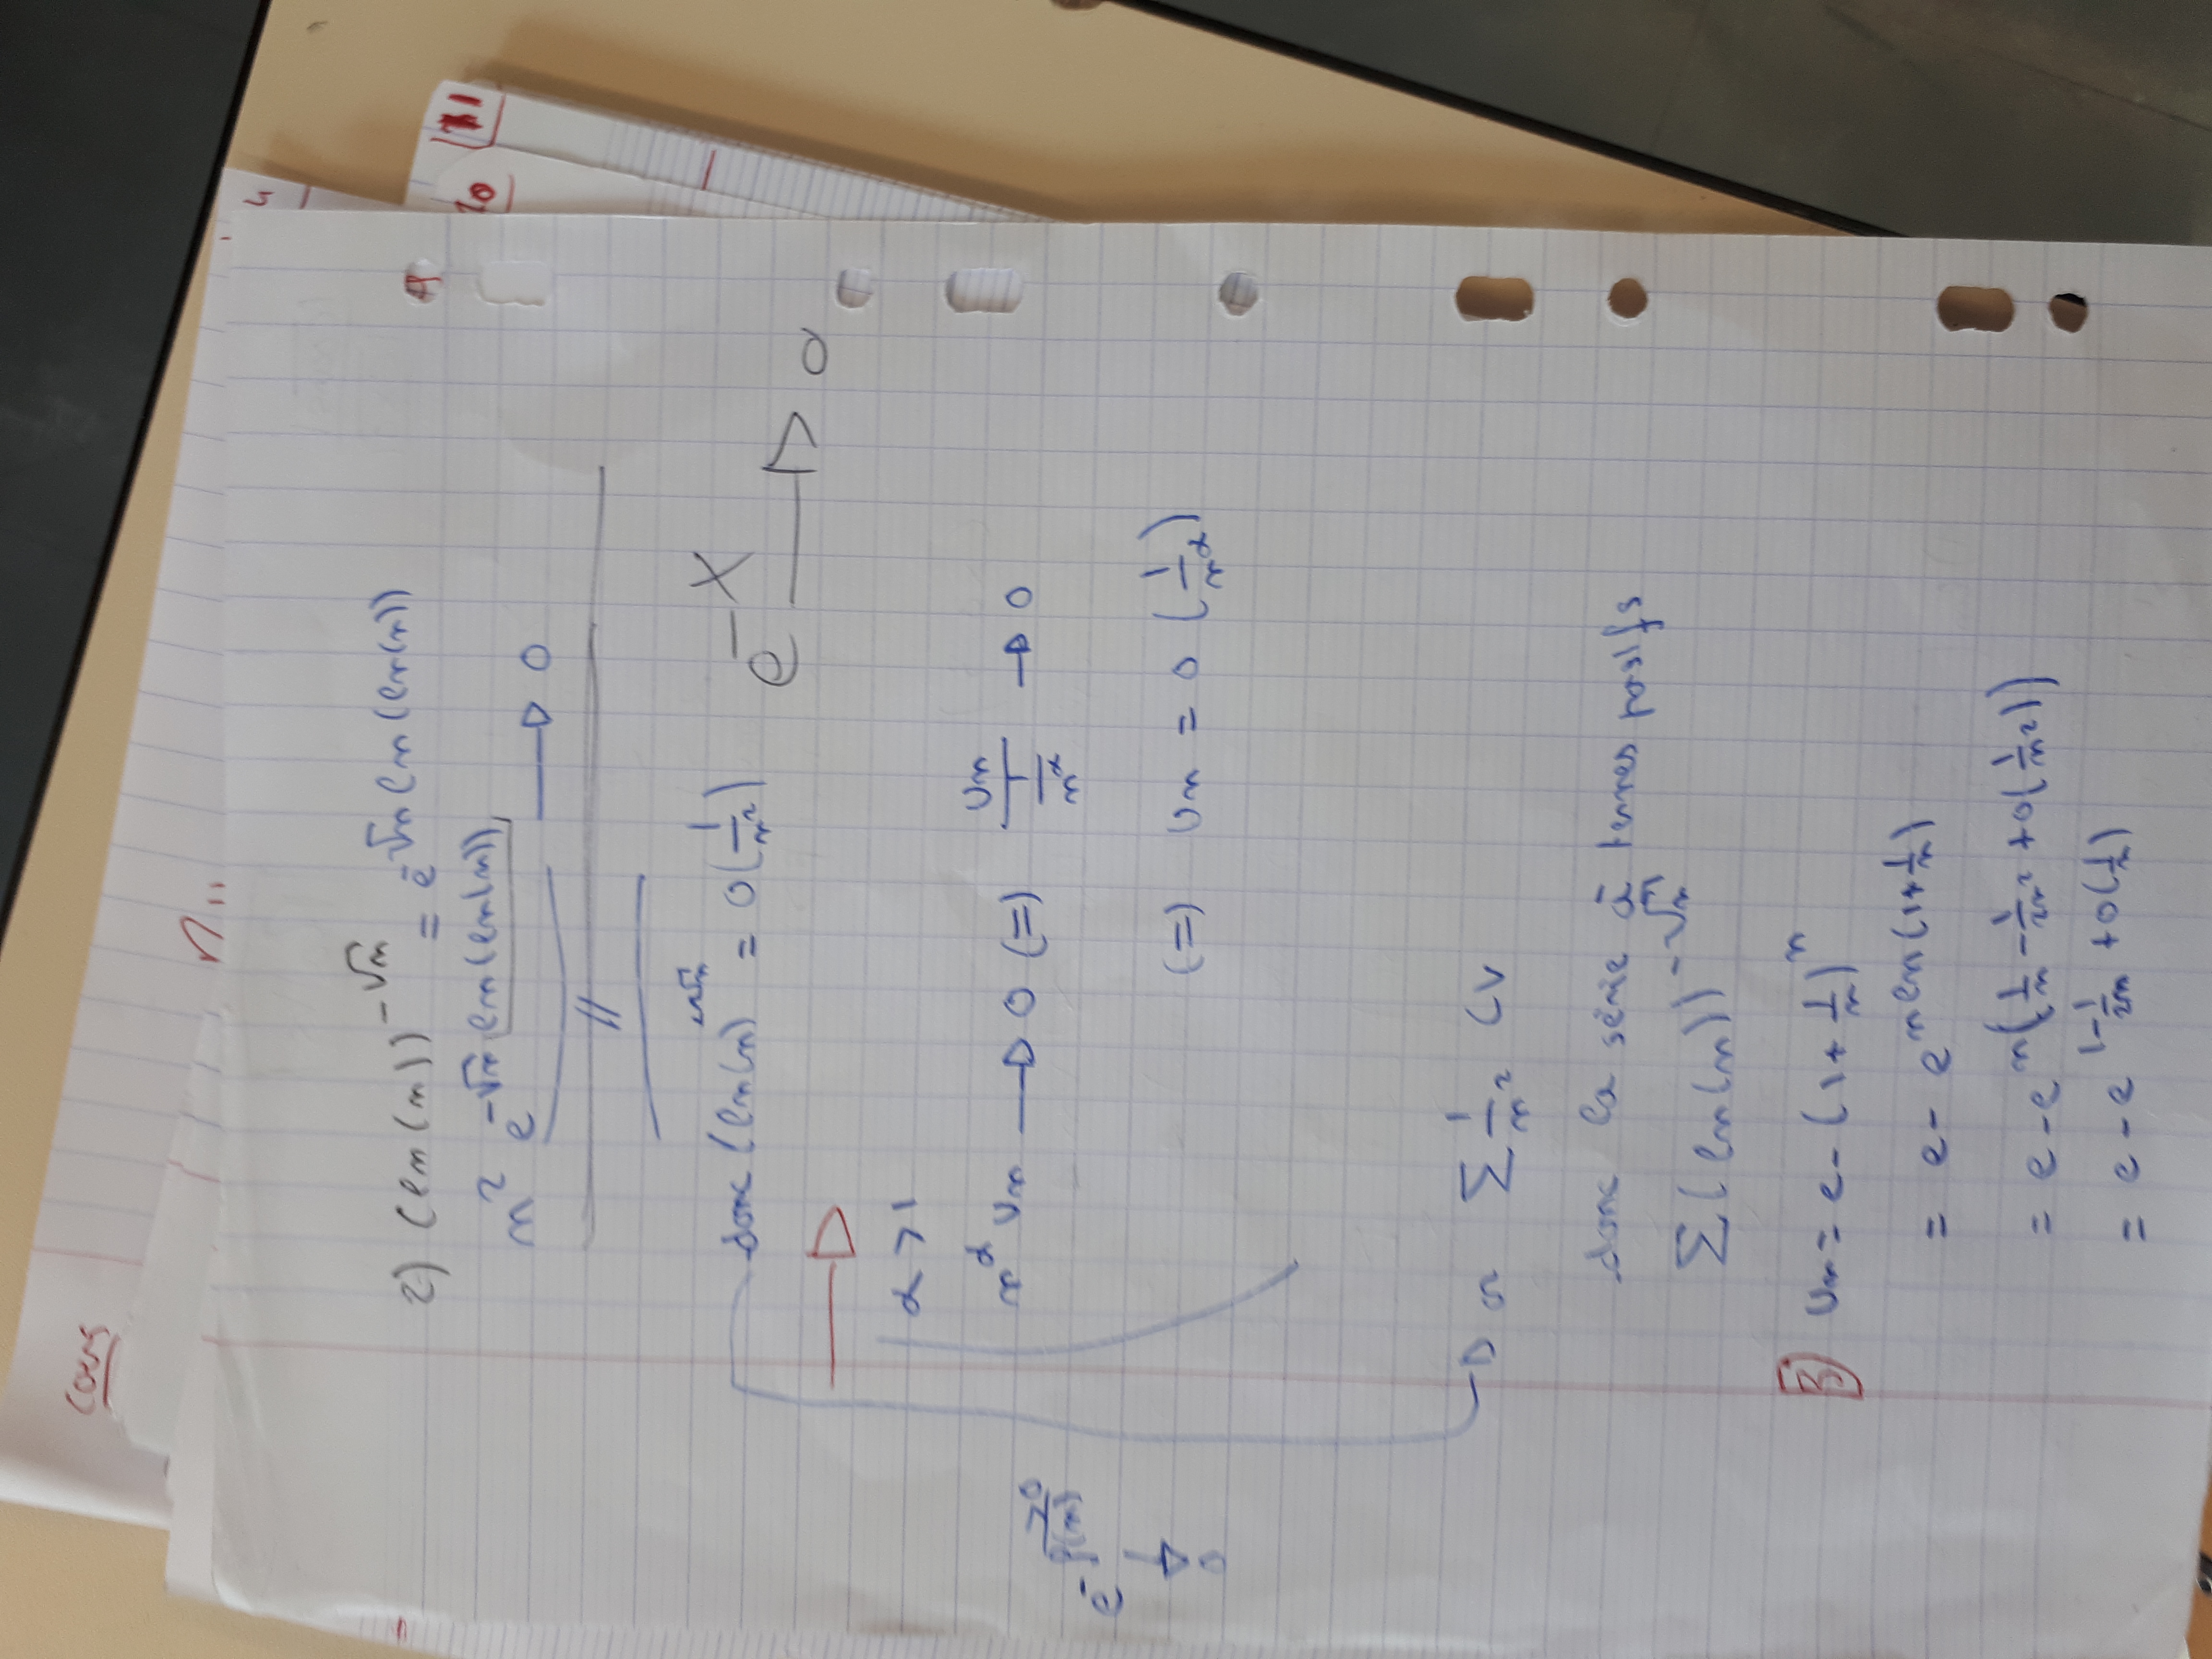 Cours
2) (ln(n))^{-√n} = e^{-√n ln(ln(n))}
n² e^{-√n ln(ln(n))} → 0
//
donc (ln(n))^{-√n} = o(1/n²)
e^{-X} → 0
α > 1
n^α Un → 0 (=) Un / (1/n^α) → 0
(=) Un = o(1/n^α)
e^{-f(n)} → 0
>0
Σ 1/n² CV
donc la série à termes positifs
Σ (ln(n))^{-√n}
3) Un = e - (1 + 1/n)^n
= e - e^{n ln(1+1/n)}
= e - e^{n(1/n - 1/2n² + o(1/n²))}
= e - e^{1 - 1/2n + o(1/n)}
20
11